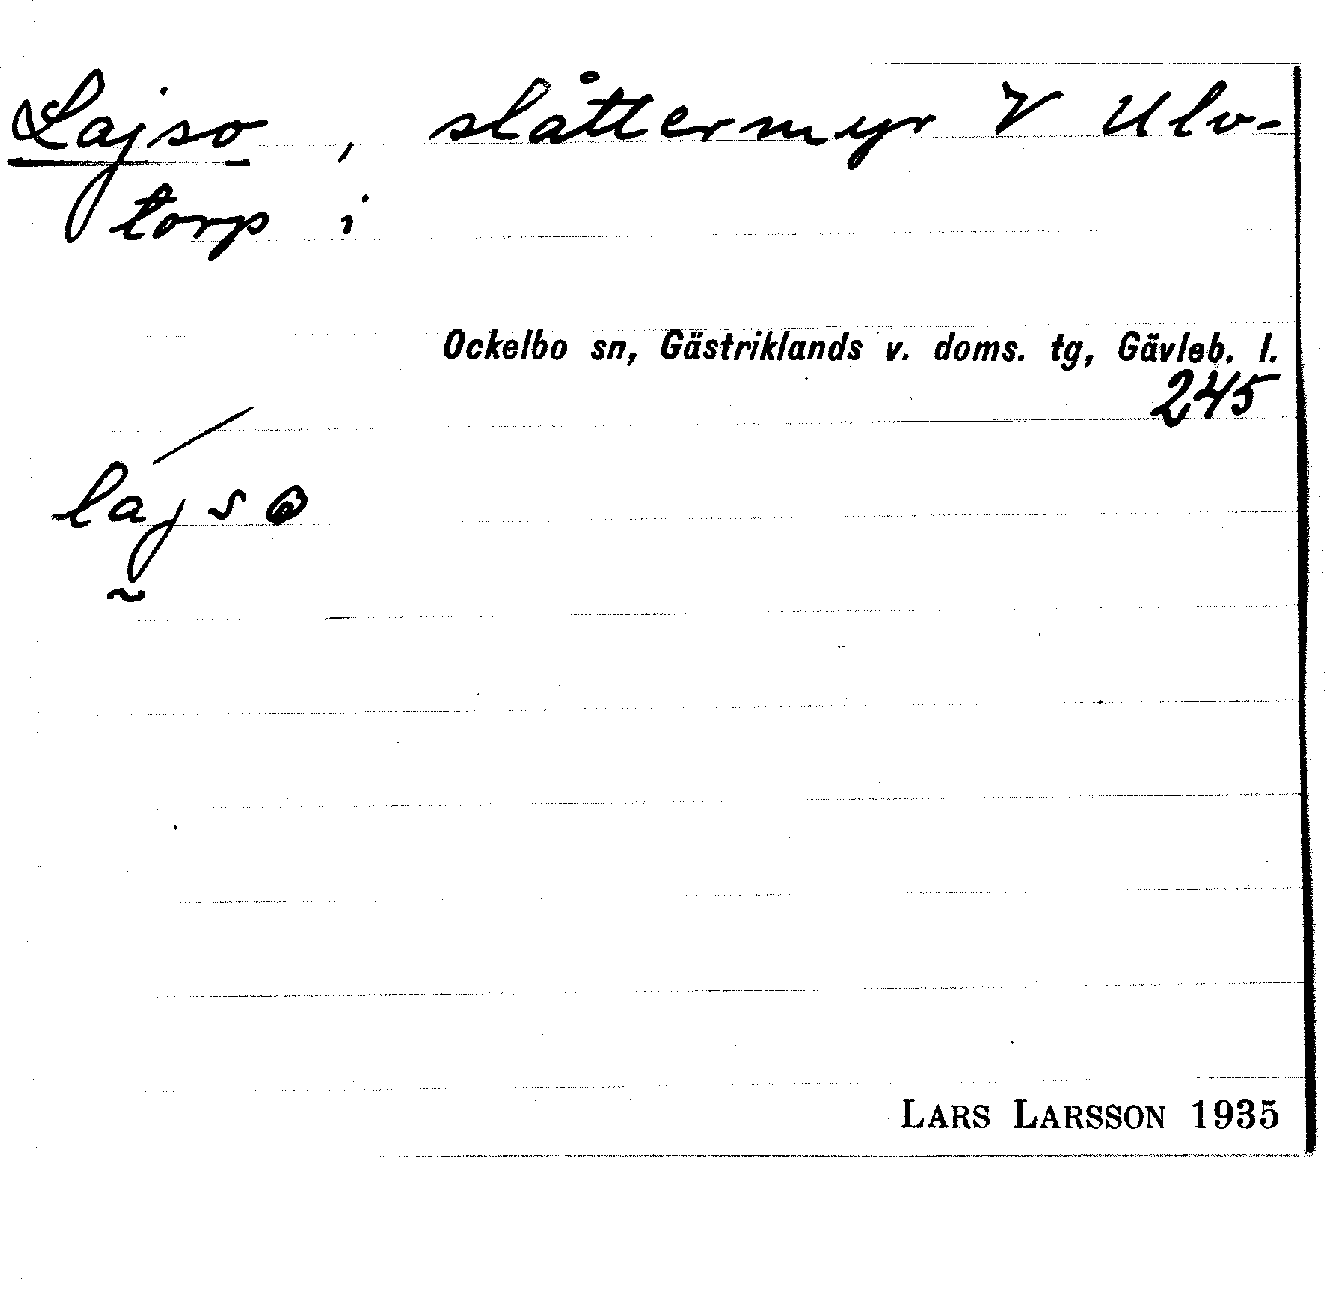 Lajso, slåttermyr V Ulv-
torp i
Ockelbo sn, Gästriklands v. doms. tg, Gävleb. l.
245
lajso
LARS LARSSON 1935